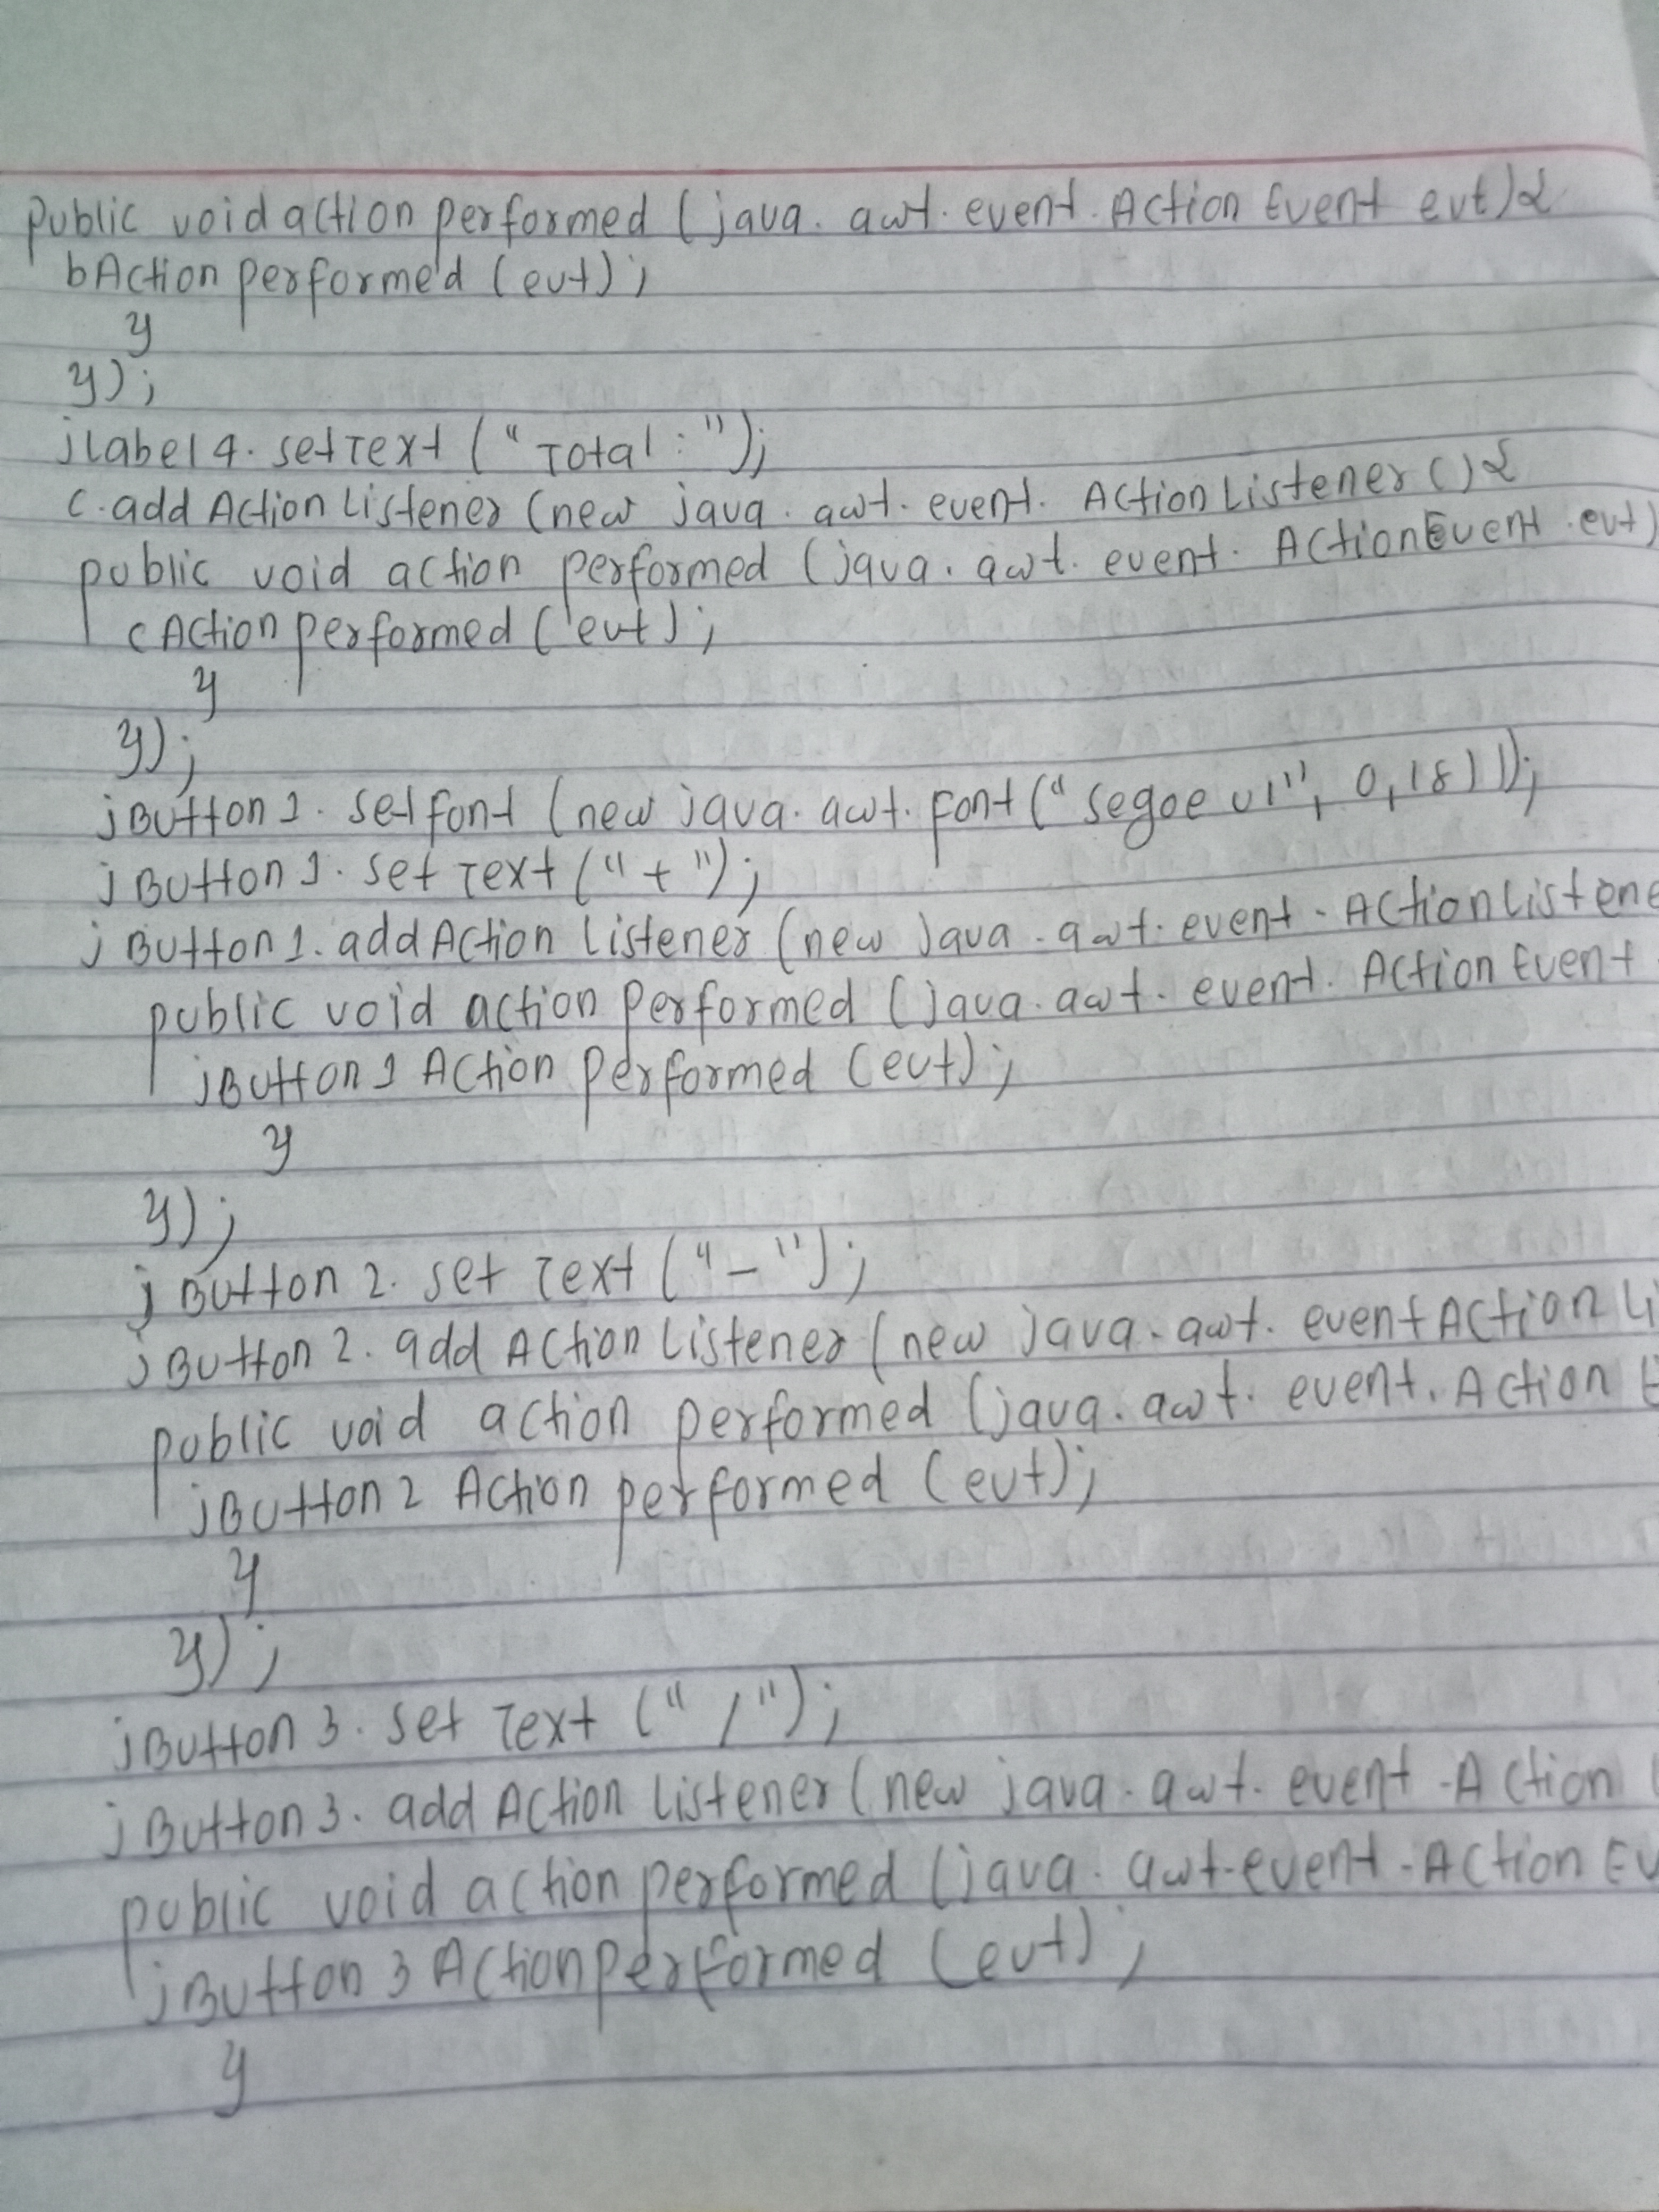 public void action performed (java. awt. event. Action Event evt){
bAction performed (evt);
}
});
jLabel 4. setText ("Total:");
c. add Action Listener (new java. awt. event. Action Listener (){
public void action performed (java. awt. event. ActionEvent evt)
cAction performed (evt);
}
});
jButton 1. setfont (new java. awt. font ("segoe UI", 0,18));
jButton 1. set Text ("+");
jButton 1. add Action Listener (new java. awt. event. Action Listene
public void action performed (java. awt. event. Action Event
jButton 1 Action performed (evt);
}
});
jButton 2. set Text ("-");
jButton 2. add Action Listener (new java. awt. event Action Li
public void action performed (java. awt. event. Action E
jButton 2 Action performed (evt);
}
});
jButton 3. set Text ("/");
jButton 3. add Action Listener (new java. awt. event. Action
public void action performed (java. awt. event. Action Ev
jButton 3 Action performed (evt);
}